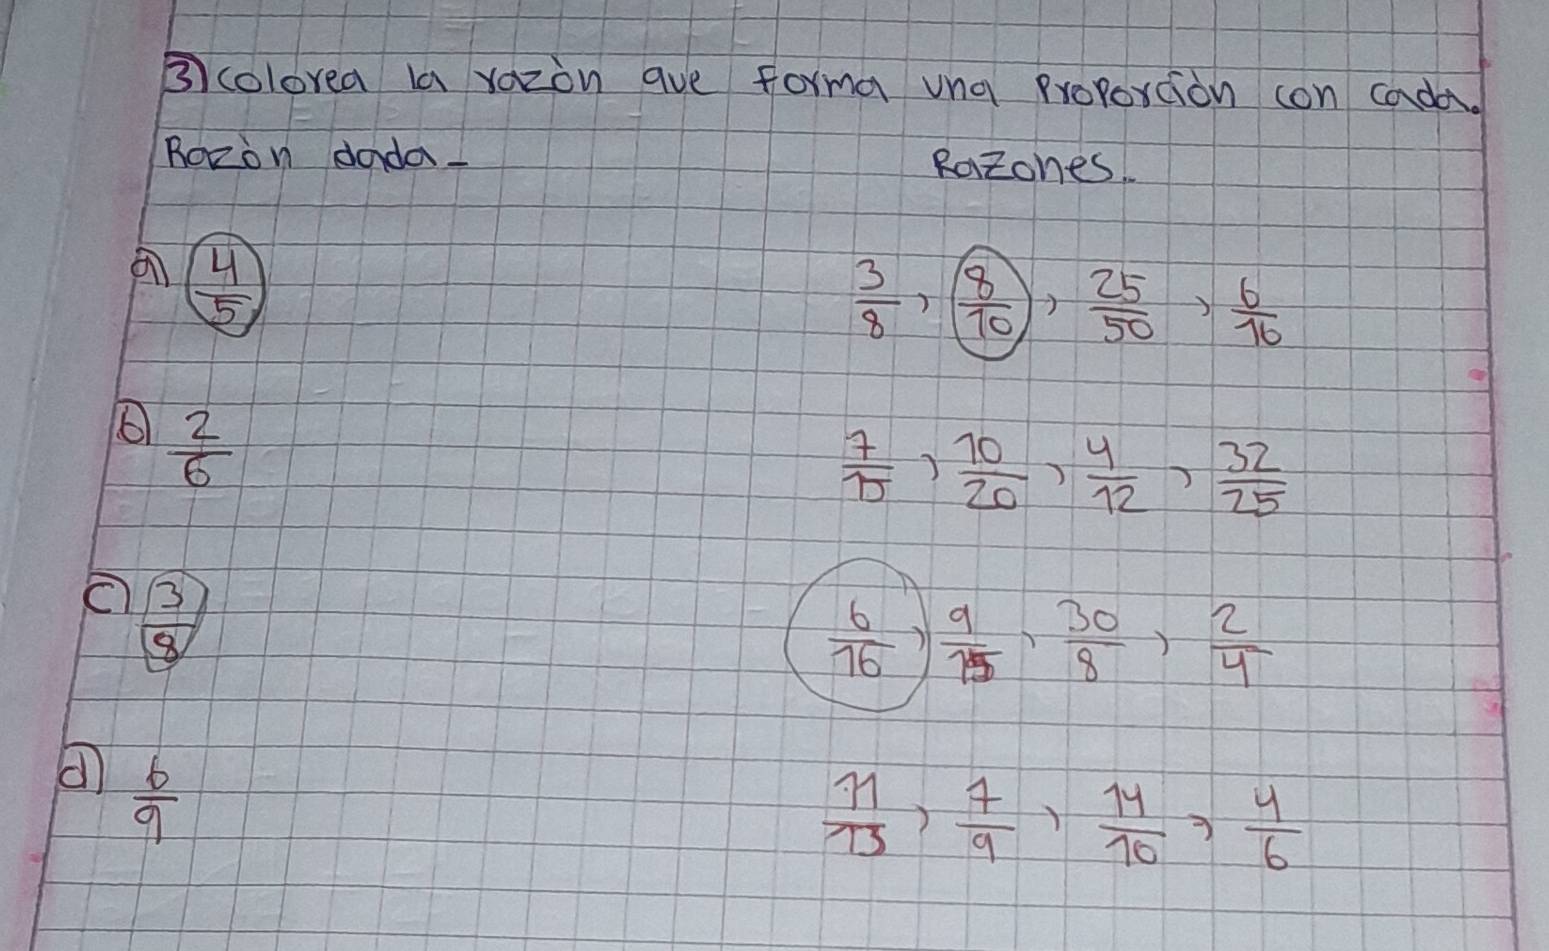 3) colorea la razòn que forma una Proporciòn con cada.
Razòn dada-
Razones.
a) 4/5
3/8, 8/10, 25/50, 6/16
b) 2/6
7/10, 10/20, 4/12, 32/25
c) 3/8
6/16, 9/15, 30/8, 2/4
d) 6/9
11/13, 7/9, 14/10, 4/6